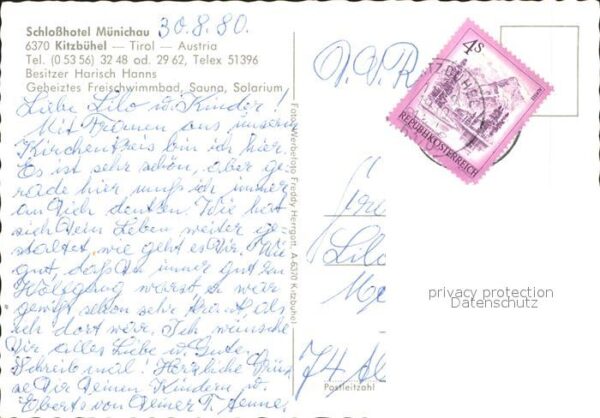 Schloßhotel Münichau 30.8.80.
6370 Kitzbühel — Tirol — Austria
Tel. (0 53 56) 32 48 od. 29 62, Telex 51396
Besitzer Harisch Hanns
Geheiztes Freischwimmbad, Sauna, Solarium
Liebe Lilo u. Kinder!
Mit Frauen aus unserem
Kirchenkreis bin ich hier.
Es ist sehr schön, aber ge-
rade hier muß ich immer
an Dich denken. Wie hat
sich Dein Leben weiter ge-
staltet, wie geht es Dir. Wie
gut, daß Du immer gut zu
Wolfgang warst, er war
gewiß schon sehr krank, als
ich dort war. Ich wünsche
Dir alles Liebe u. Gute.
Schreib mal! Herzliche Grüs-
se Dir Deinen Kindern u.
Eberts von Deiner T.
Foto-Werbefoto Freddy Herrgott, A-6370 Kitzbühel
P.P.R.
4S
REPUBLIK ÖSTERREICH
Lilo
74
Postleitzahl
privacy protection
Datenschutz